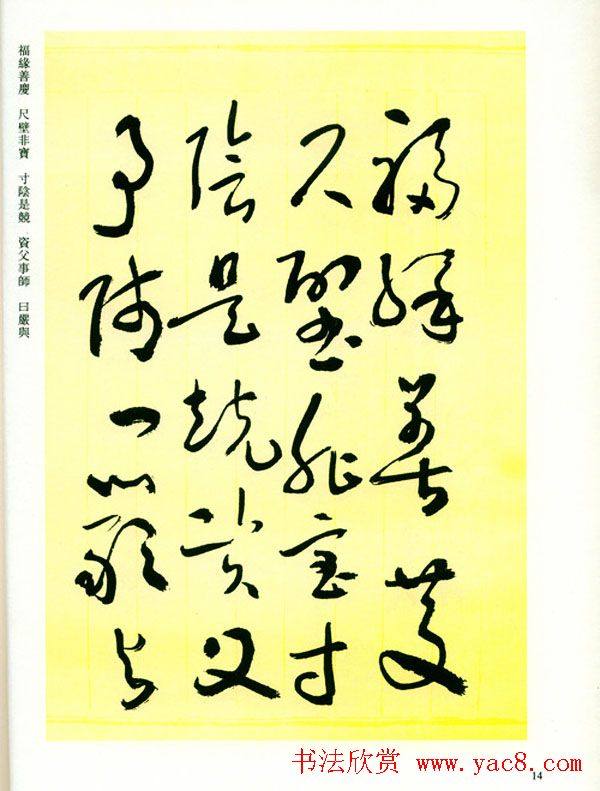 福緣善慶
尺壁非寶寸
陰是競資父
事師曰嚴與
福緣善慶 尺壁非寶 寸陰是競 資父事師 曰嚴與
14
书法欣赏 www.yac8.com